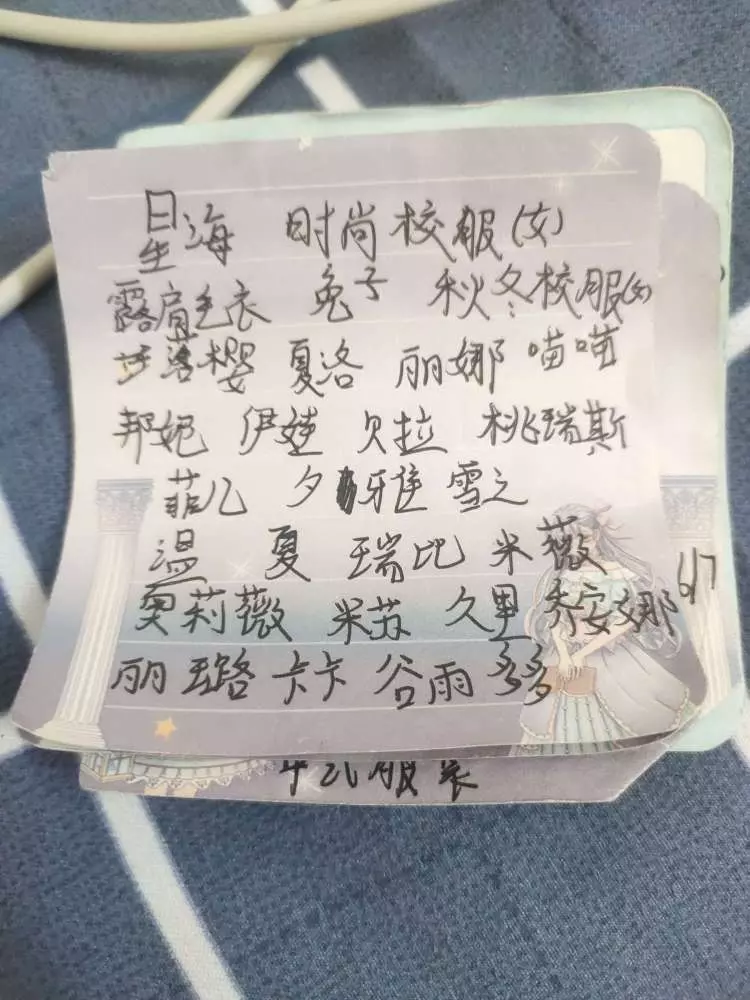 星海 时尚校服(女)
露肩毛衣 兔子 秋冬校服(女)
落樱 夏洛 丽娜 喵喵
邦妮 伊娃 贝拉 桃瑞斯
菲儿 夕雅 雪之
温 夏 瑞比 米薇
奥莉薇 米苏 久里 乔安娜
丽璐 卡卡 谷雨 多多
服装